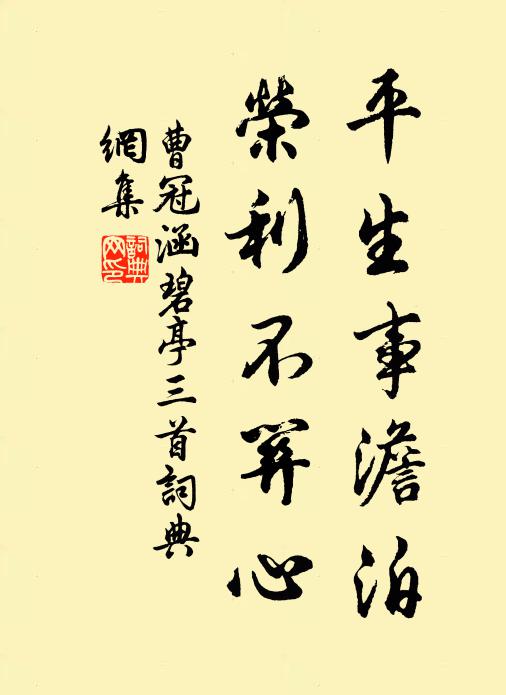 平生事澹泊
榮利不關心
曹冠涵碧亭三首詞典
網集
詞典網印